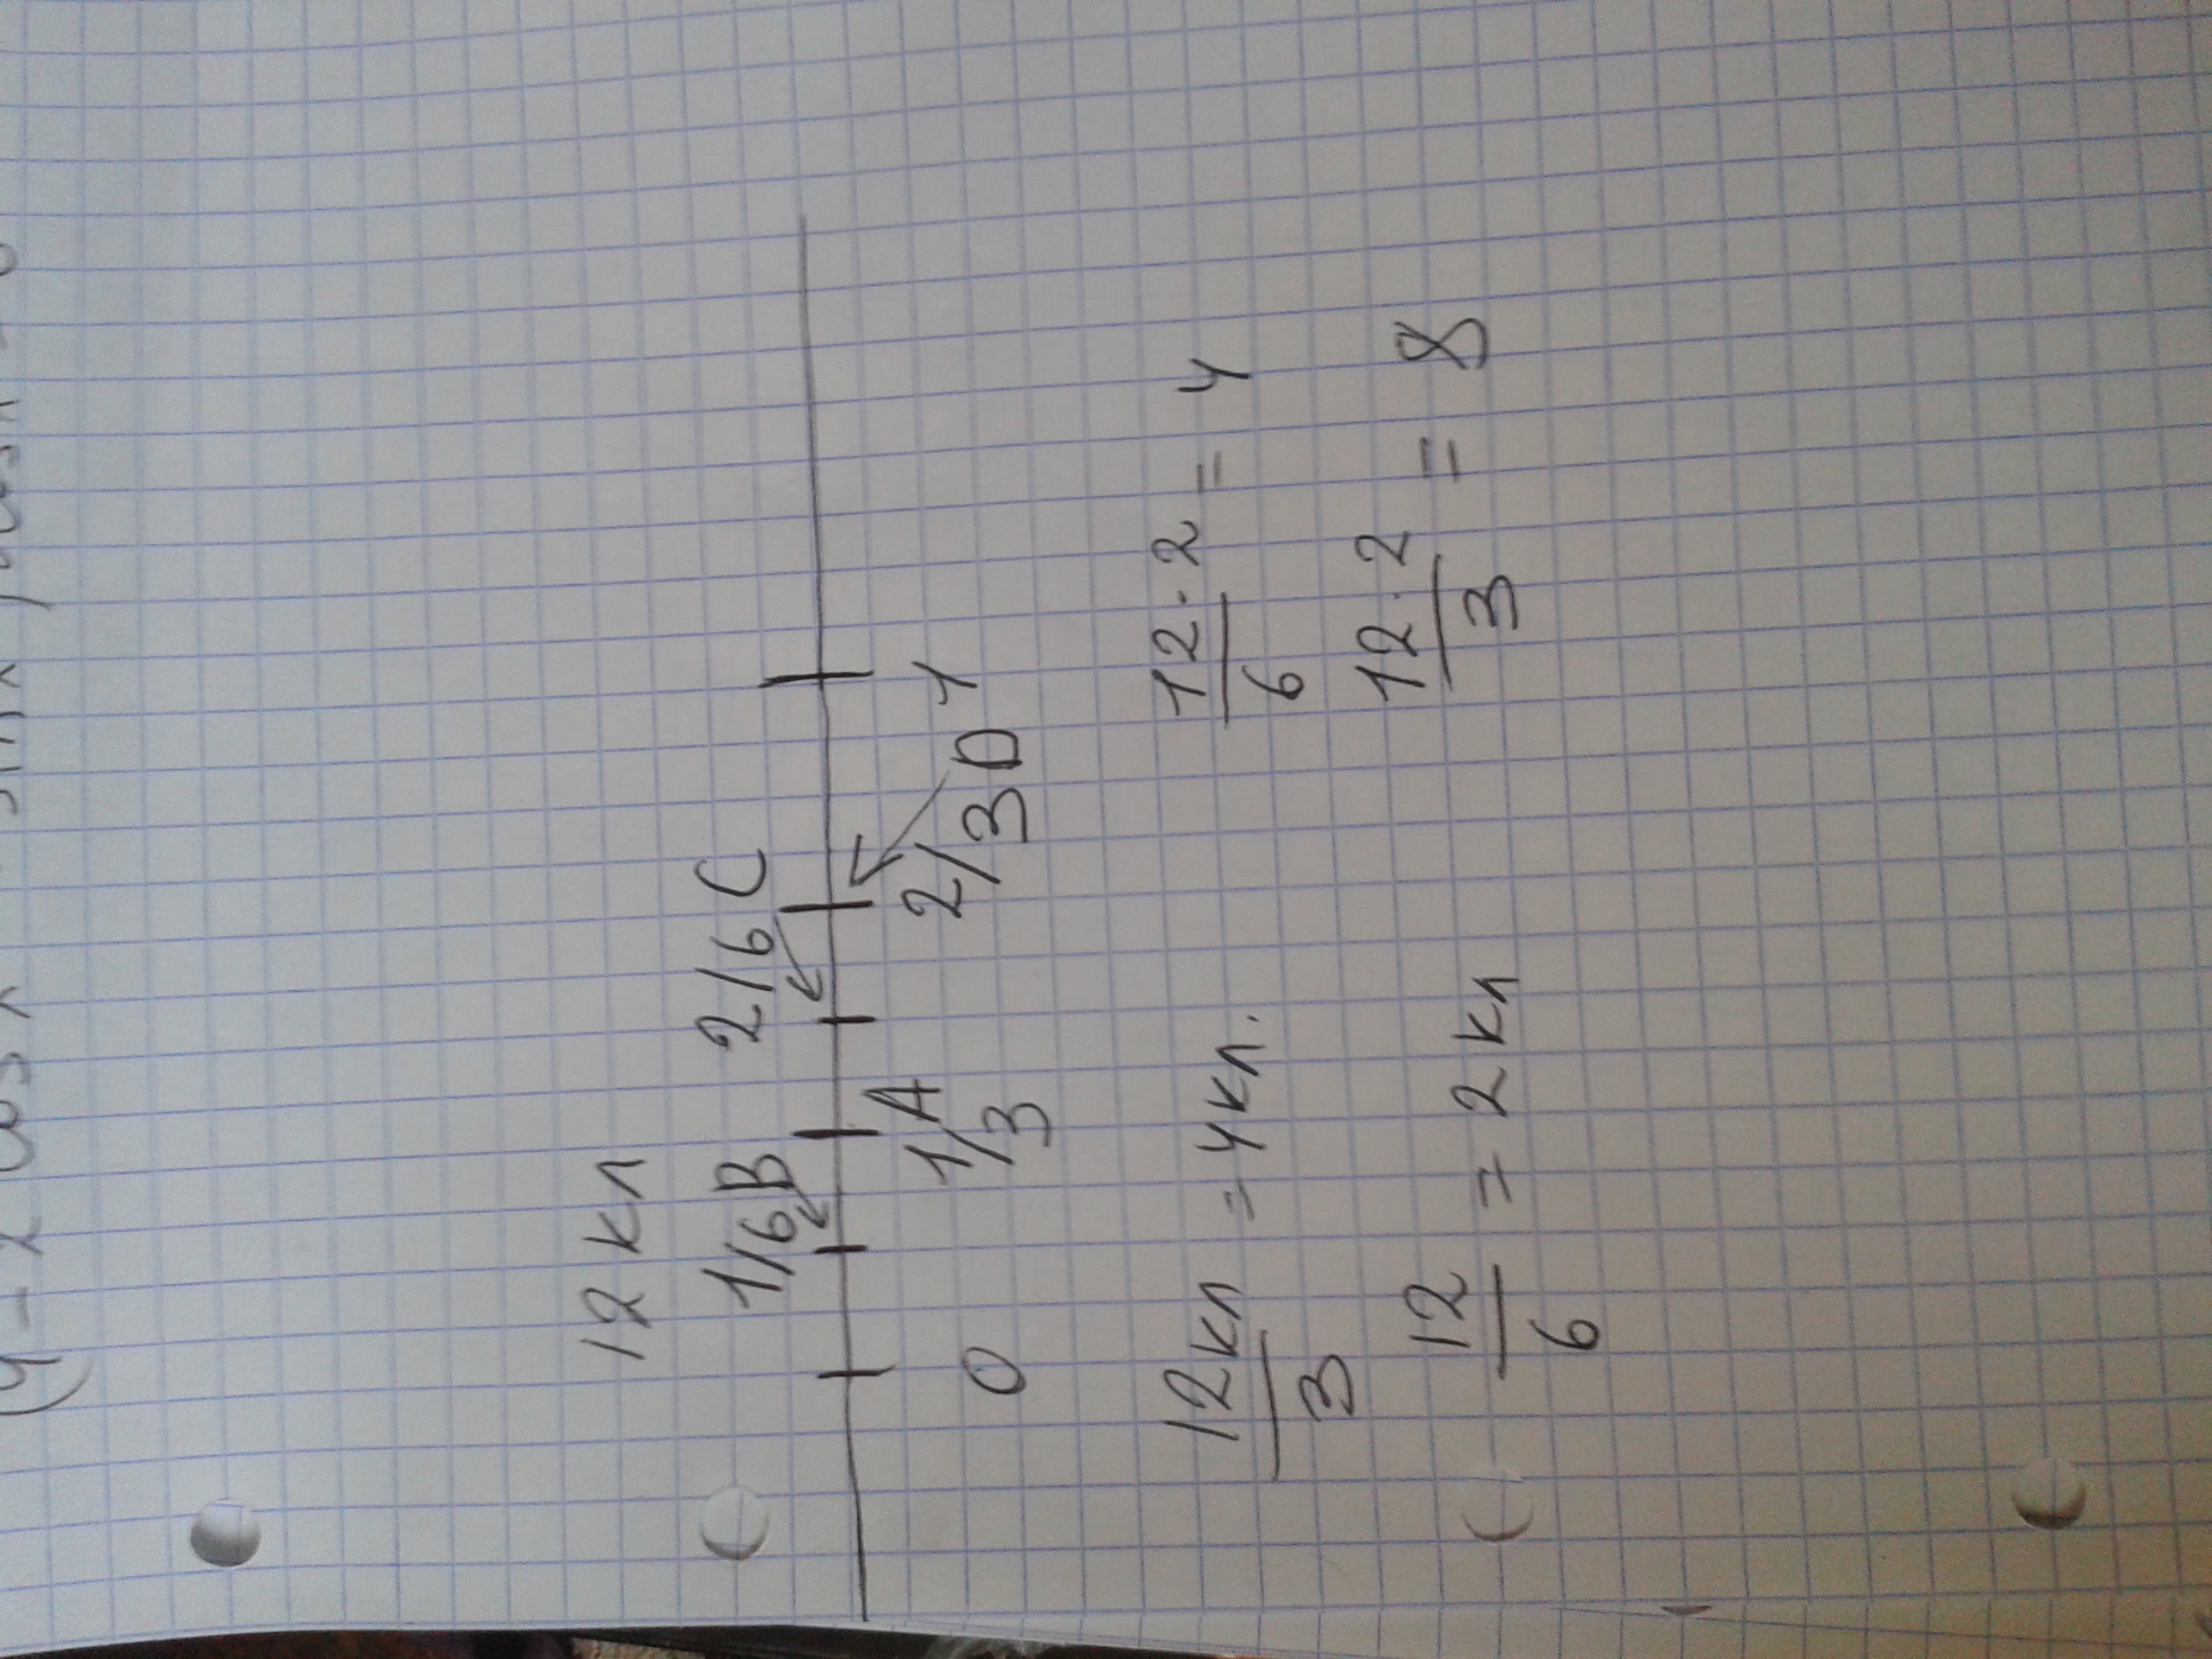 12 кл
1/6 B 2/6 C
0 1/3 A 2/3 D 1
12кл/3 = 4кл. 12·2/6 = 4
12/6 = 2кл 12·2/3 = 8